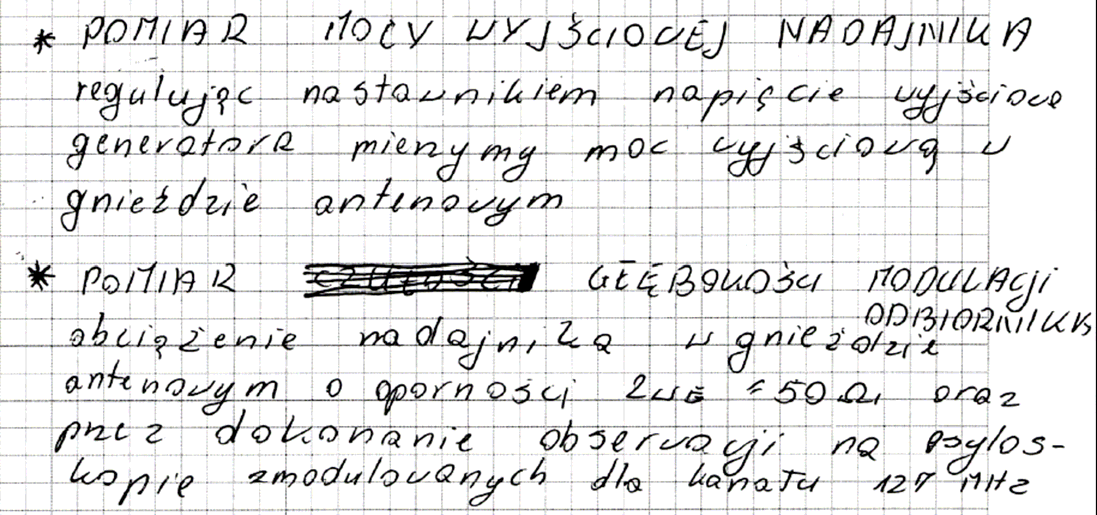 * POMIAR MOCY WYJŚCIOWEJ NADAJNIKA
regulując nastawnikiem napięcie wyjściowe
generatora mierzymy moc wyjściową w
gnieździe antenowym
* POMIAR GŁĘBOKOŚCI MODULACJI
ODBIORNIKA
obciążenie nadajnika w gnieździe
antenowym o oporności ZWE = 50 Ω, oraz
przez dokonanie obserwacji na osylos-
kopie zmodulowanych dla kanału 127 MHz